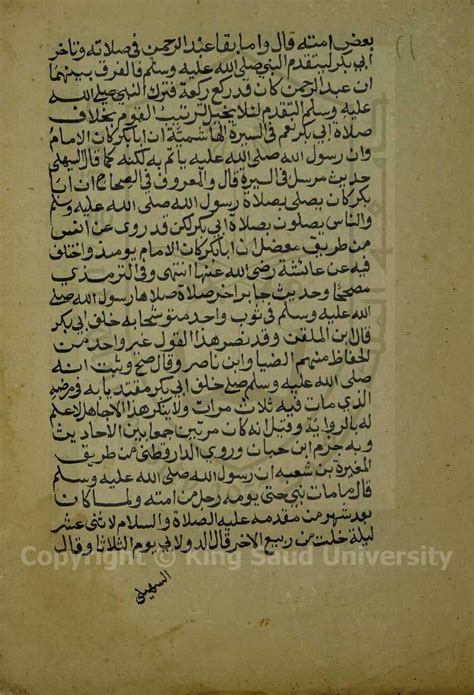 بعض امته قال واما بقا عبد الرحمن في صلاته وتاخر
ابي بكر ليتقدم النبي صلى الله عليه وسلم فالفرق بينهما
ان عبد الرحمن كان قد ركع ركعة فترك النبي صلى الله
عليه وسلم التقدم لئلا يختل ترتيب القوم بخلاف
صلاة ابي بكر نعم في السيرة الهاشمية ان ابا بكر كان الامام
وان رسول الله صلى الله عليه ياتم به لكنه كما قال السهيلي
حديث مرسل في السيرة قال والمعروف في الصحاح ان ابا
بكر كان يصلي بصلاة رسول الله صلى الله عليه وسلم
والناس يصلون بصلاة ابي بكر لكن قد روي عن انس
من طريق متصل ان ابا بكر كان الامام يومئذ واختلف
فيه عن عائشة رضي الله عنها انتهى وفي الترمذي
مصححا وحديث جابر اخر صلاة صلاها رسول الله صلى
الله عليه وسلم في ثوب واحد متوشحا به خلف ابي بكر
قال ابن الملقن وقد نصر هذا القول غير واحد من
الحفاظ منهم الضيا وابن ناصر وقال صح وثبت انه
صلى الله عليه وسلم صلى خلف ابي بكر مقتديا به في مرضه
الذي مات فيه ثلاث مرات ولا ينكر هذا الا جاهل لا علم
له بالرواية وقيل انه كان مرتين جمعا بين الاحاديث
وبه جزم ابن حبان وروي الدارقطني من طريق
المغيرة بن شعبه ان رسول الله صلى الله عليه وسلم
قال ما مات نبي حتى يومه رجل من امته ولما كان
بعد شهر من مقدمه عليه الصلاة والسلام لاثنتي عشر
ليلة خلت من ربيع الاخر قال الدولابي يوم الثلاثا وقال
السهيلي
Copyright © King Saud University